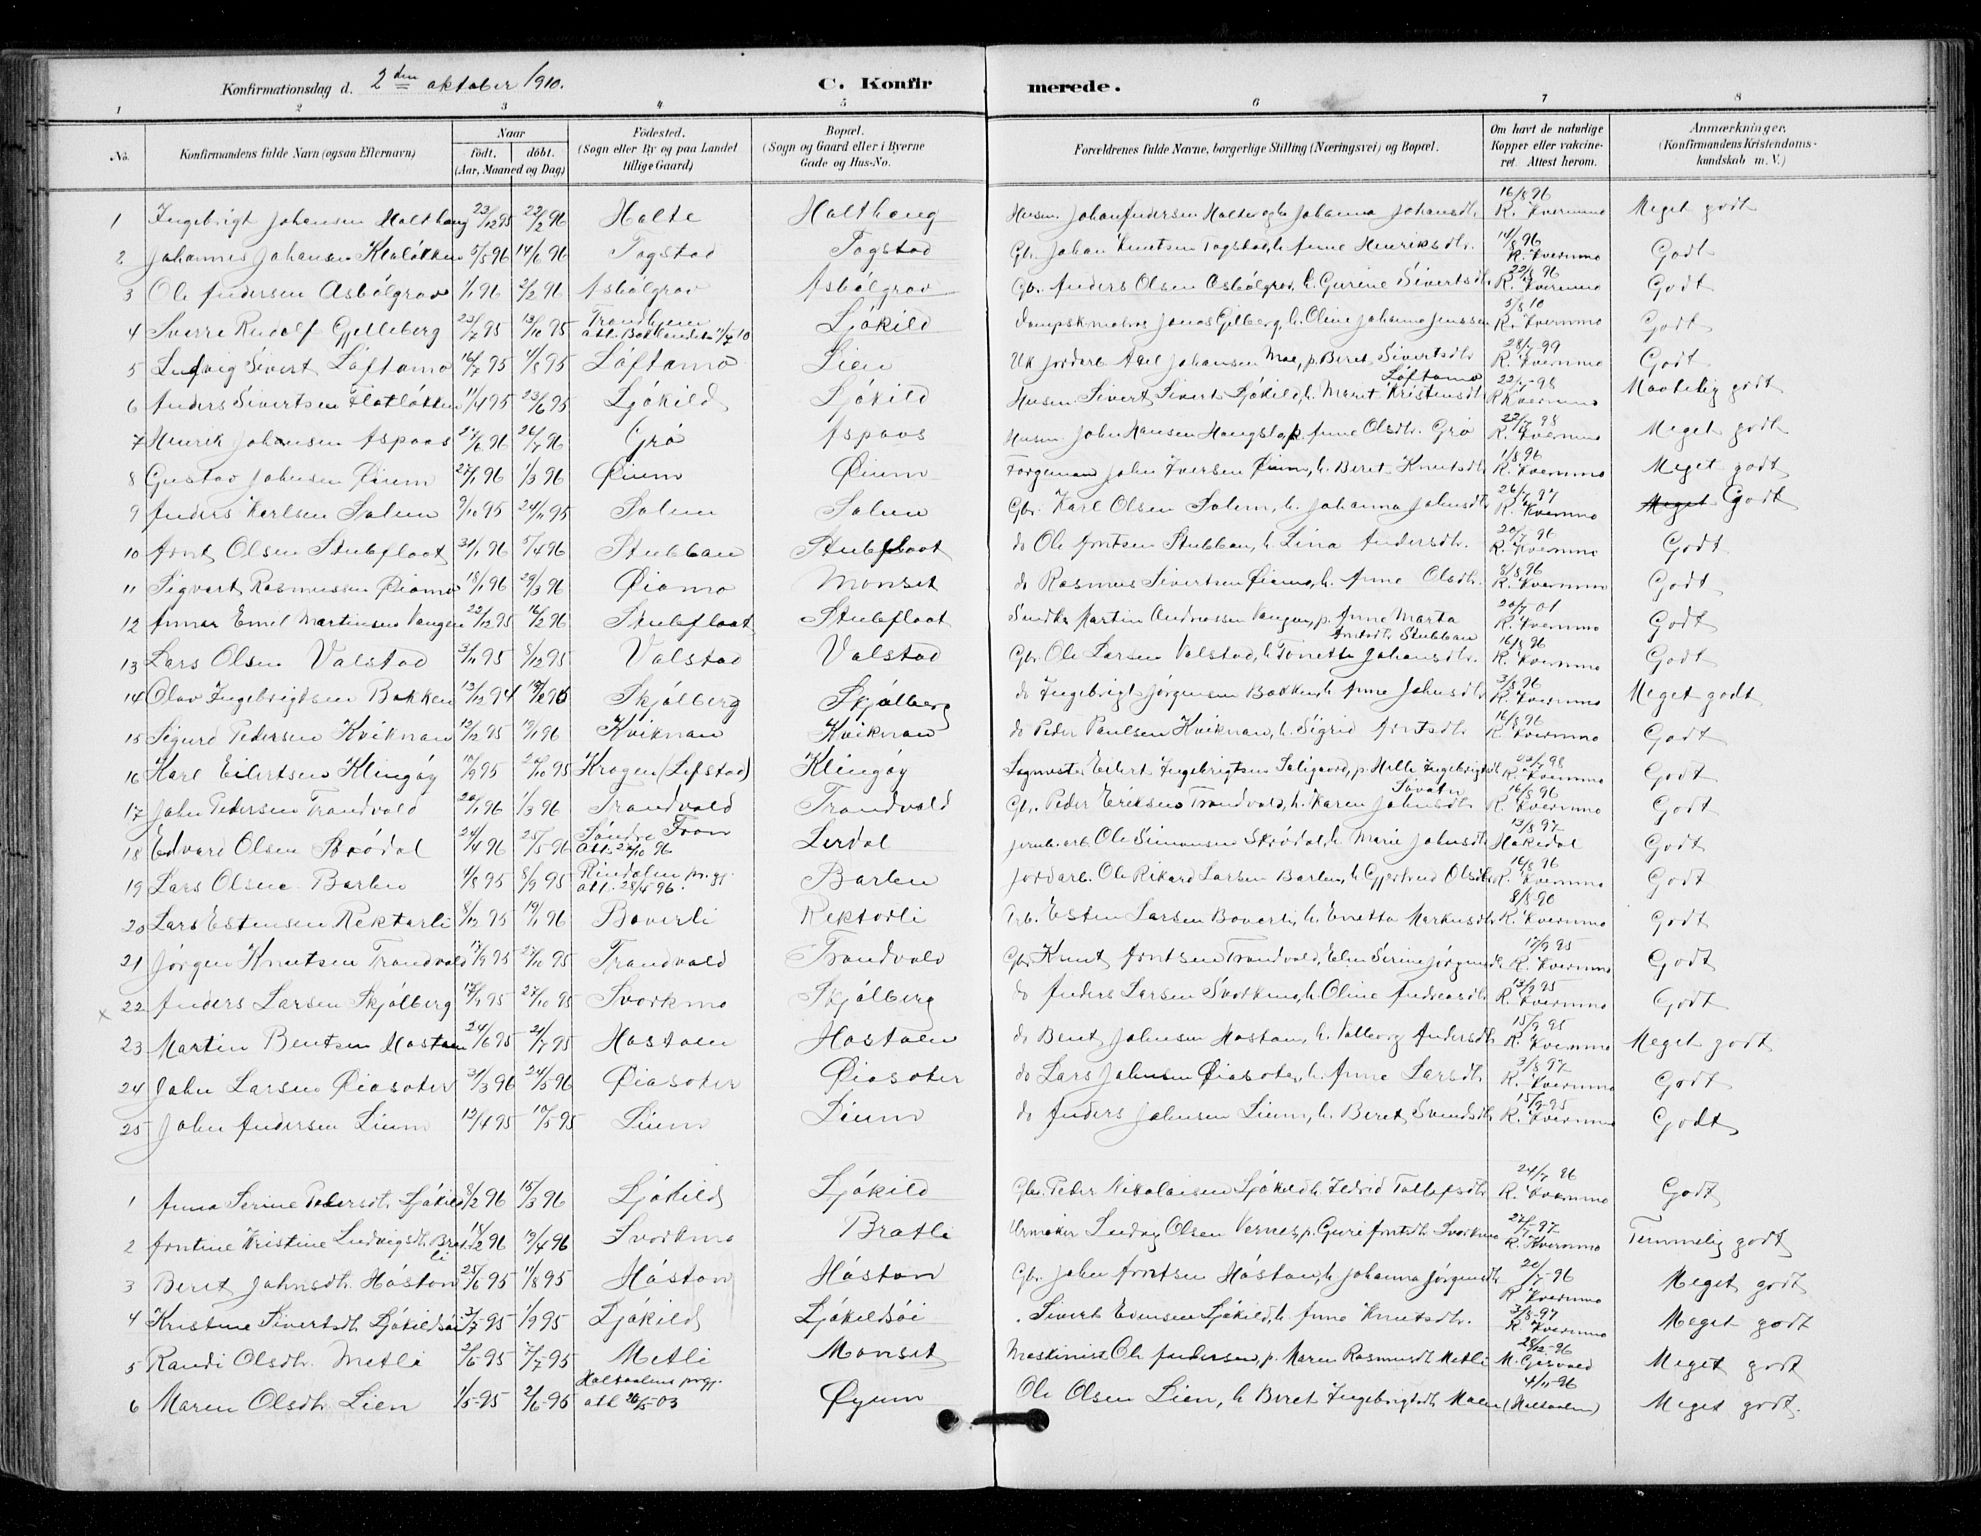 Konfirmationsdag d. 2den oktober 1910. C. Konfirmerede.
1 2 3 4 5 6 7 8
No. Konfirmandens fulde Navn (ogsaa Efternavn) Naar født. døbt. (Aar, Maaned og Dag) Fødested. (Sogn eller By og paa Landet tillige Gaard) Bopæl. (Sogn og Gaard eller i Byerne Gade og Hus-No. Forældrenes fulde Navne, borgerlige Stilling (Næringsvei) og Bopæl. Om havt de naturlige Kopper eller vakcineret. Attest herom. Anmærkninger. (Konfirmandens Kristendomskundskab m. V.)
1 Ingebrigt Johansen Holthaug 23/12 95 22/2 96 Holte Holthaug Husm. Johan Andersen Holte og h. Johanna Johansdtr. 16/8 96 R. Kvernmo Meget godt
2 Johannes Johansen 5/5 96 14/6 96 Togstad Togstad Gbr. Johan Knutsen Togstad, h. Anne Henriksdtr. 14/8 96 R. Kvernmo Godt
3 Ole Andersen Asbølgrav 1/1 96 2/2 96 Asbølgrav Asbølgrav Gbr. Anders Olsen Asbølgrav, h. Gurine Sivertsdtr. 22/8 96 R. Kvernmo Godt
4 Sverre Rudolf Gjelleberg 23/7 95 13/10 95 Trondhjem att. Baklandet 11/7 10 Ljøkild Jonas Gjelberg, h. Oline Johanna Jenssen 5/8 10 R. Kvernmo Godt
5 Ludvig Sivert Løftamo 16/7 95 4/8 95 Løftamo Lien Uk. jordarb. Axel Johansen Moe, p. Beret Sivertsdtr. Løftamo 28/7 99 R. Kvernmo Godt
6 Anders Sivertsen 11/4 95 23/6 95 Ljøkild Ljøkild Husm. Sivert Siverts. Ljøkild, h. Marit Kristensdtr. 22/7 98 R Kvernmo Maatelig godt
7 Henrik Johnsen Aspaas 26/7 96 Grø Aspaas Husm. John Hansen p. Anne Olsdtr. Grø 22/7 98 R. Kvernmo Meget godt
8 Gustav Johnsen Øium 27/1 96 1/3 96 Øium Øium John Iversen Øium, h. Beret Knutsdtr. 1/8 96 R. Kvernmo Meget godt
9 Anders Karlsen Solem 9/10 95 24/11 95 Solem Solem Gbr. Karl Olsen Solem, h. Johanna Johnsdtr. 26/7 97 R. Kvernmo Meget Godt
10 Arnt Olsen Stubfloot 31/1 96 5/4 96 Stubban Stubfloot do Ole Arntsen Stubban, h. Lina Andersdtr. 20/7 96 R. Kvernmo Godt
11 Sigvart Rasmussen Øiamo 18/1 96 29/3 96 Øiamo Monset do Rasmus Sivertsen Øiamo, h. Anne Olsdtr. 8/8 96 R. Kvernmo Godt
12 Annar Emil Martinsen Vangen 22/12 95 16/2 96 Stubfloot Stubfloot Martin Andreassen Vangen, p. Anne Marta Arntsdtr. Stubban 20/7 01 R. Kvernmo Godt
13 Lars Olsen Valstad 3/11 95 8/12 95 Valstad Valstad Gbr. Ole Larsen Valstad, h. Tonette Johansdtr. 16/8 96 R. Kvernmo Godt
14 Olav Ingebrigtsen Bakken 13/12 94 Skjølberg Skjølberg do Ingebrigt Jørgensen Bakken, h. Anne Johnsdtr. 3/8 96 R. Kvernmo Meget godt
15 Sigurd Pedersen Kviknan 12/12 95 19/1 96 Kviknan Kviknan do Peder Paulsen Kviknan, h. Sigrid Arntsdtr. 16/8 96 R. Kvernmo Godt
16 Karl Eilertsen Klingøy 10/9 95 20/10 95 Krogen (Lefstad) Klingøy Eilert Ingebrigtsen p. Helle Ingebrigtsdtr. 22/7 98 R. Kvernmo Godt
17 John Pedersen Trondvald 20/1 96 1/3 96 Trondvald Trondvold Gbr. Peder Eriksen Trondvald, h. Karen Johnsdtr. 16/8 96 R. Kvernmo Godt
18 Edvard Olsen Skrødal 24/4 96 25/5 96 Søndre Fron Att. 24/10 96 Lerdal Ole Simonsen Skrødal, h. Marie Johnsdtr. 13/8 97 Hakedal Godt
19 Lars Olsen Barlen 4/8 95 8/9 95 Rindalen prgj. att. 28/5 96. Barlen Jordarb. Ole Rikard Larsen Barlen, h. Gjertrud Olsdtr. 16/8 96 R. Kvernmo Godt
20 Lars Estensen Rektorli 8/12 95 19/1 96 Boverli Rektorli Arb. Esten Larsen Boverli, h. Enetta Markusdtr. 8/8 96 R. Kvernmo Godt
21 Jørgen Knutsen Trondvold 17/9 95 27/10 95 Trondvold Trondvold Gbr. Knut Arntsen Trondvold, Elen Serine Jørgensdtr. 12/9 95 R. Kvernmo Godt
22 Anders Larsen Skjølberg 17/9 95 27/10 95 Svorkmo Skjølberg do Anders Larsen Svorkmo, h. Oline Andreasdtr. 13/9 95 R. Kvernmo Godt
23 Martin Bentsen Hostoen 24/6 95 21/7 95 Hostoen Hostoen do Bent Johnsen Hoston, h. Valborg Andersdtr. 15/9 95 R. Kvernmo Meget godt
24 John Larsen Øiasoter 31/3 96 24/5 96 Øiasoter Øiasoter do Lars Johnsen Øiasoter, h. Anne Larsdtr. 3/8 97 R. Kvernmo Godt
25 John Andersen Lium 12/4 95 19/5 95 Lium Lium do Anders Johnsen Lium, h. Beret Svendsdtr. 15/9 95 R. Kvernmo Godt
1 Anna Serine Pedersdtr. Ljøkild 8/2 96 15/3 96 Ljøkild Ljøkild Gbr. Peder Nikolaisen Ljøkild, h. Ildrid Tollefsdtr. 24/7 96 R. Kvernmo Godt
2 Arntine Kristine Ludvigsdtr. Bratli 18/2 96 19/4 96 Svorkmo Bratli Urmaker Ludvig Olsen Vernes, p. Guri Arntsdtr. Svorkmo 27/7-97 R. Kvernmo Temmelig godt
3 Beret Johnsdtr. Høston 25/6 95 11/8 95 Høston Høston Gbr. John Arntsen Høston, h. Johanna Jørgensdtr. 20/7-96 R. Kvernmo Meget godt
4 Kristine Sivertsdtr. Ljøkildsøi 3/7-95 1/9 95 Ljøkild Ljøkildsøi Sivert Evensen Ljøkild, h. Anne Knutsdtr. 3/8-97 R. Kvernmo Meget godt
5 Randi Olsdtr. Metli 2/6-95 7/7-95 Metli Monset Maskinist Ole Andersen, p. Maren Rasmusdtr. Metli 28/12-96 M. Gisvold Meget godt
6 Maren Olsdtr. Lien 1/5-95 2/6-95 Holtaalens prgj. att 26/5-03 Øyum Ole Olsen Lien, h. Beret Ingebrigtsdtr. Moen 4/11-96 (Holtaalen) Meget godt.